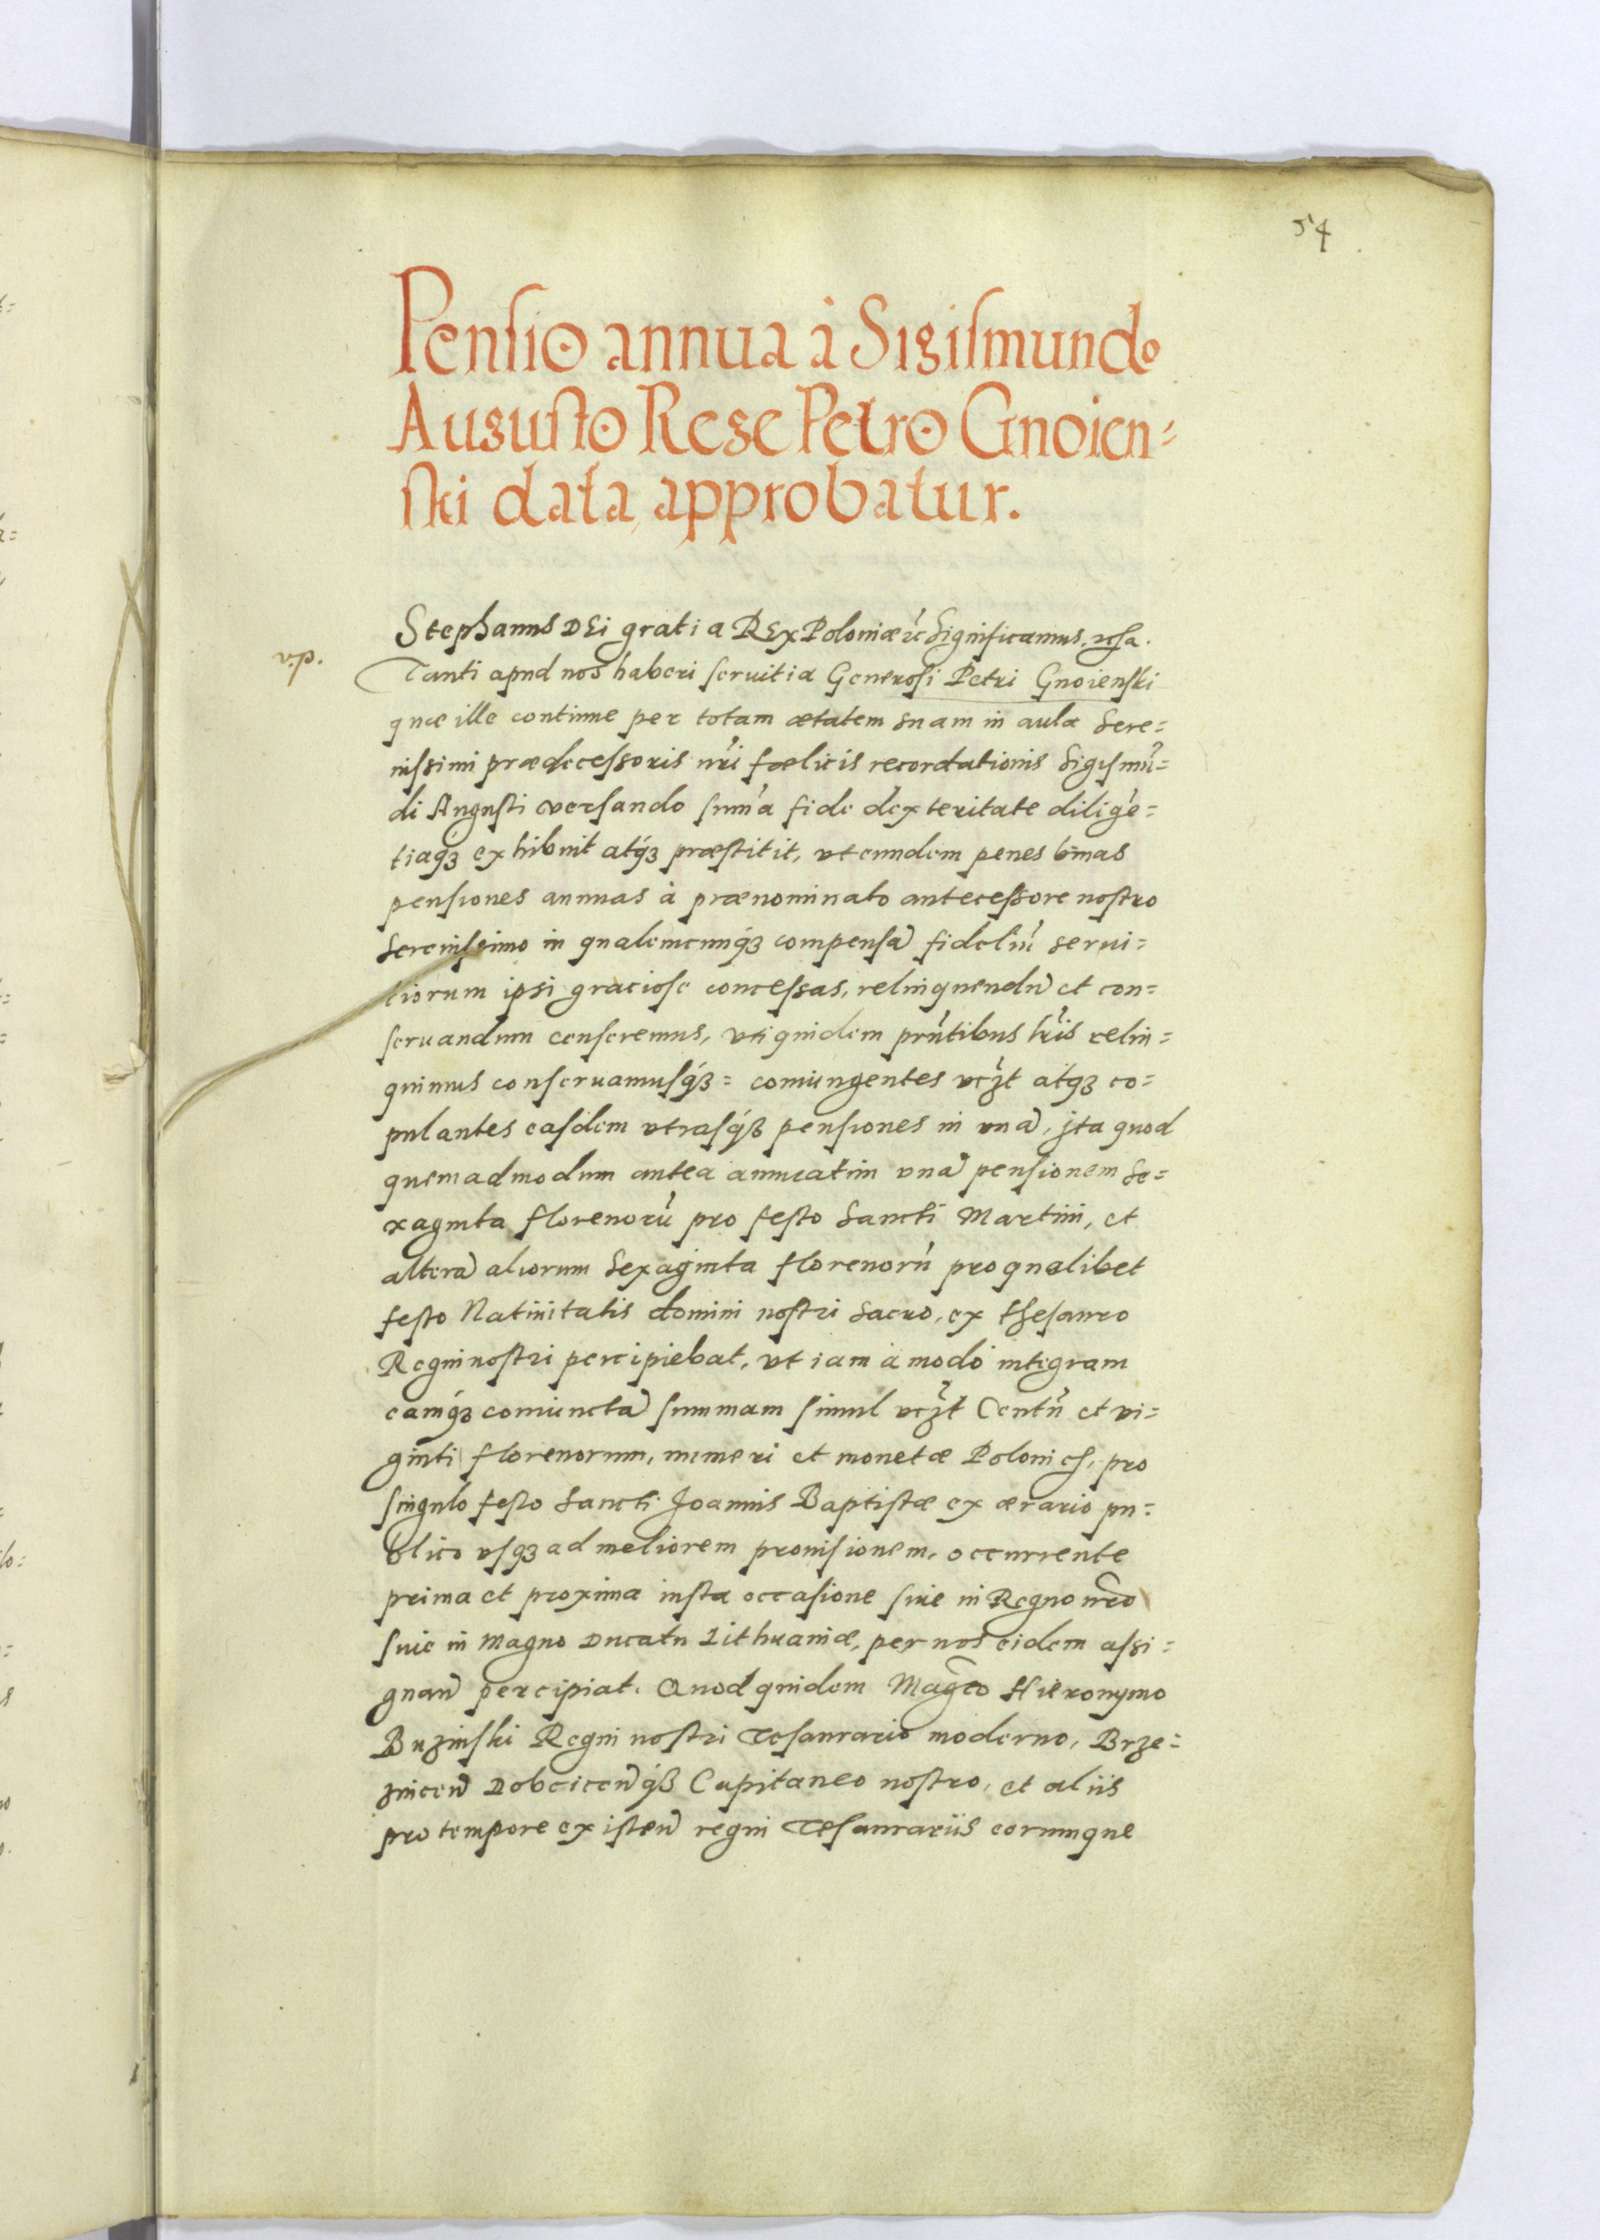 54
Pensio annua à Sigismundo
Augusto Rege Petro Gnoien=
ski data approbatur.
Stephanus DEi gratia REx Poloniæ &c̃ Significamus.
v.p.
Tanti apud nos haberi seruitia Generosi Petri Gnoienski
quæ ille continue per totam ætatem suam in aula Sere=
nissimi prædecessoris nr̃i fœlicis recordationis Sigismũ=
di Augusti versando sum̃a fide dexteritate diligẽ=
tiaq́ꝫ exhibuit atq́ꝫ præstitit, vt eundem penes binas
pensiones annuas à prænominato antecessore nostro
Serenissimo in qualemcunq́ꝫ compensã fideliũ serui=
tiorum ipsi graciose concessas, relinquendũ et con=
seruandum censeremus, vti quidem prñtibus lr̃is relin=
quimus conseruamusq́ꝫ= coniungentes vcz̃t atq́ꝫ co=
pulantes easdem vtrasq́ꝫ pensiones in vnã, jta quod
quemadmodum antea annuatim vnã pensionem Se=
xaginta florenorũ pro festo Sancti Martini, et
alterã aliorum Sexaginta florenorũ pro qualibet
festo Natiuitatis domini nostri Sacro, ex thesauro
Regni nostri percipiebat, vt iam à modo integram
eamq́ꝫ coniunctã summam simul vcz̃t Centũ et vi=
ginti florenorum, numeri et monetæ Polonich, pro
singulo festo Sancti Joannis Baptistæ ex ærario pu=
blico vsqꝫ ad meliorem prouisionem, occurrente
prima et proxima iusta occasione siue in Regno nr̃o
siue in Magno Ducatu Lithuaniæ, per nos eidem assi=
gnañ percipiat. Quod quidem Magc̃o Hieronymo
Buzinski Regni nostri Tesaurario moderno, Brze=
zniceñ Dobciceñq́ꝫ Capitaneo nostro, et aliis
pro tempore existeñ regni Tesaurariis eorumque